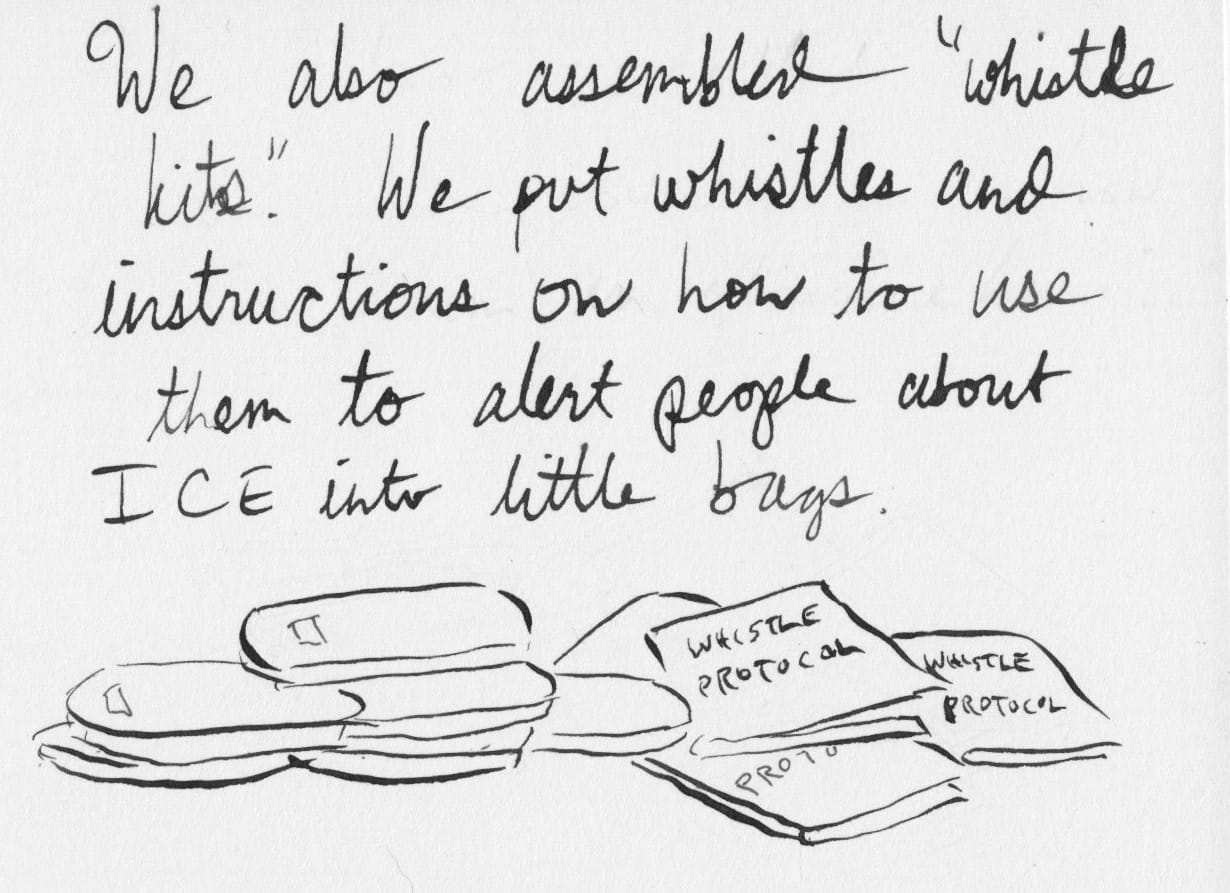 We also assembled "whistle
kits." We put whistles and
instructions on how to use
them to alert people about
ICE into little bags.
WHISTLE
PROTOCOL
WHISTLE
PROTOCOL
PROTO